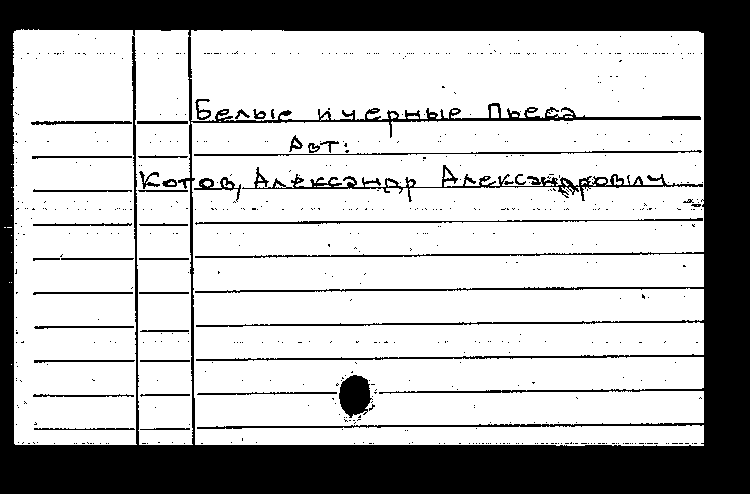 Белые и черные Пьеса
Авт:
Котов, Александр Александрович